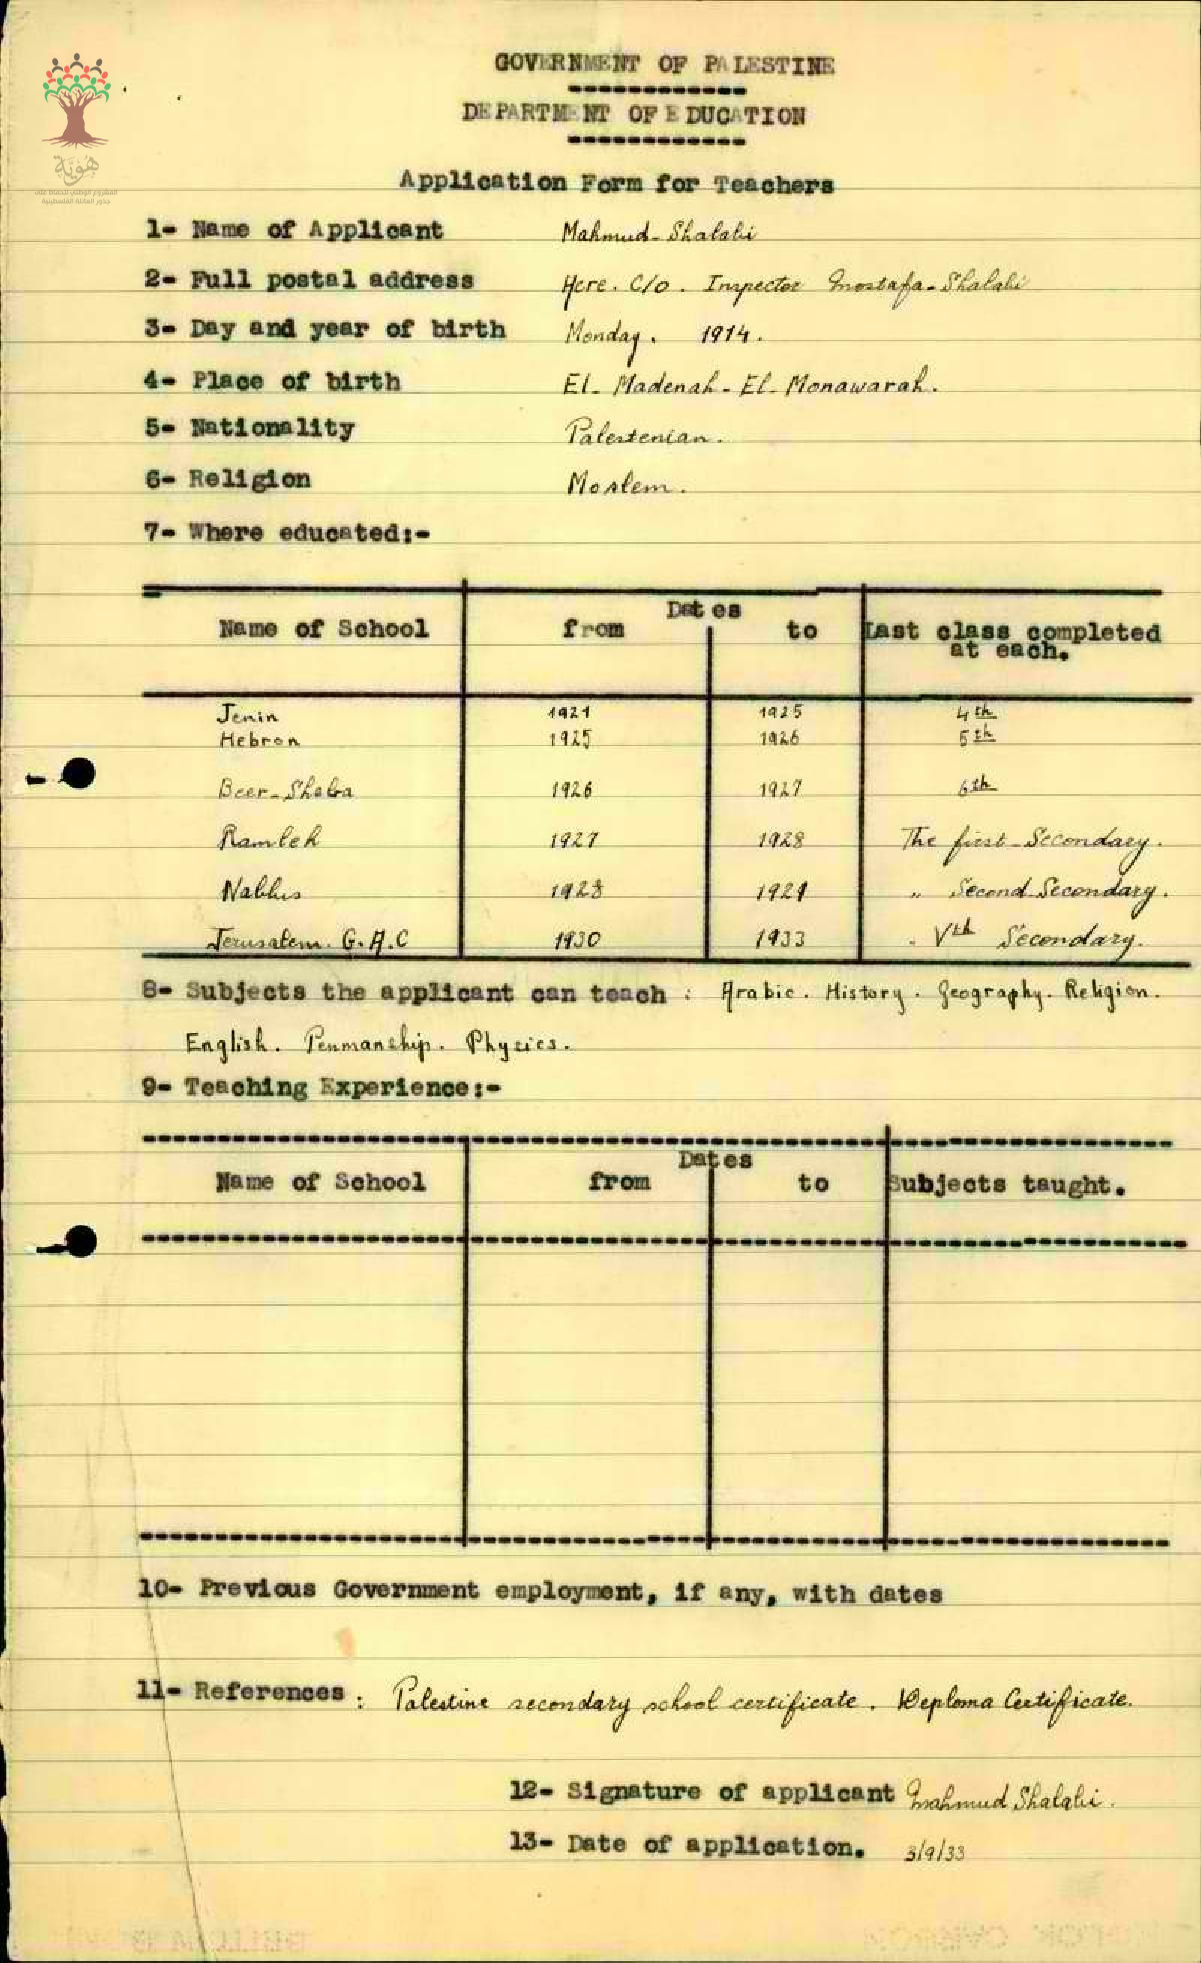 هوية
المشروع الوطني للحفاظ على
جذور العائلة الفلسطينية
GOVERNMENT OF PALESTINE
DEPARTMENT OF EDUCATION
Application Form for Teachers
1- Name of Applicant Mahmud-Shalabi
2- Full postal address Here. C/o. Inspector Mostafa-Shalabi
3- Day and year of birth Monday. 1914.
4- Place of birth El-Madenah-El-Monawarah.
5- Nationality Palestenian.
6- Religion Moslem.
7- Where educated:-
Dates
Name of School from to Last class completed
at each.
Jenin 1921 1925 4th
Hebron 1925 1926 5th
Beer-Sheba 1926 1927 6th
Ramleh 1927 1928 The first-Secondary.
Nablus 1928 1929 " Second Secondary.
Jerusalem. G.A.C 1930 1933 " Vth Secondary.
8- Subjects the applicant can teach : Arabic. History. Geography. Religion.
English. Penmanship. Physics.
9- Teaching Experience:-
Dates
Name of School from to Subjects taught.
10- Previous Government employment, if any, with dates
11- References : Palestine secondary school certificate. Deploma Certificate.
12- Signature of applicant Mahmud Shalabi.
13- Date of application. 3/9/33